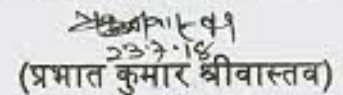 23.7.18
(प्रभात कुमार श्रीवास्तव)